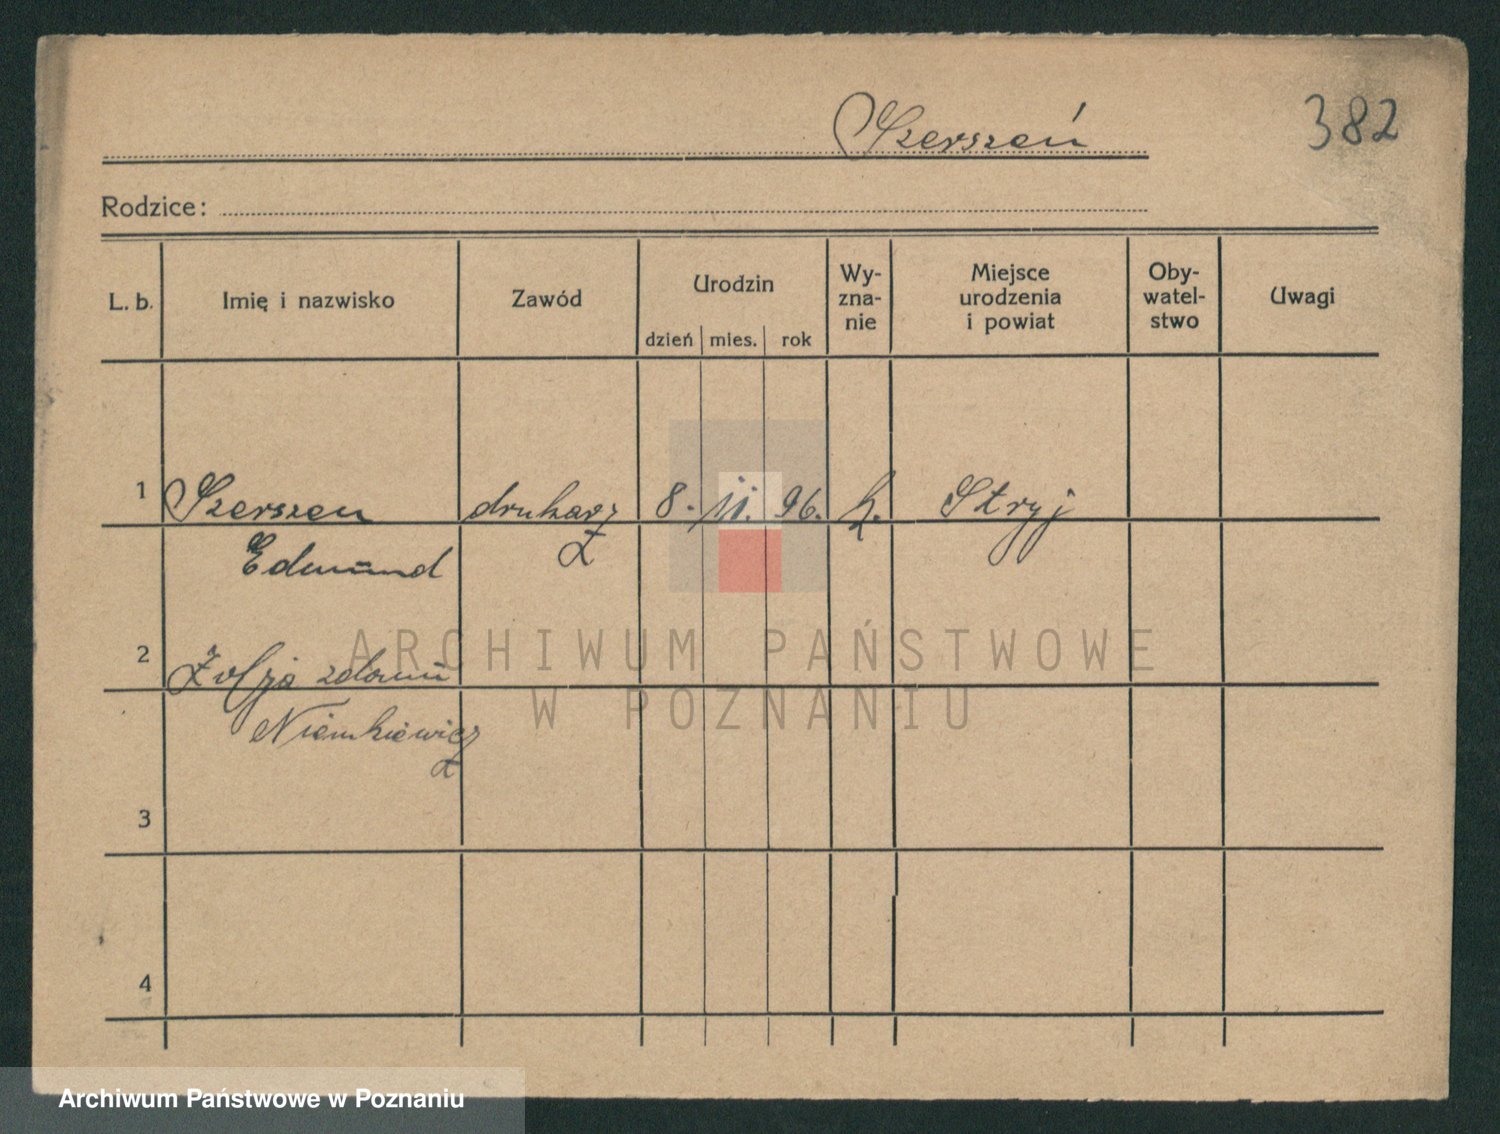 Szerszeń
382
Rodzice:
L. b.
Imię i nazwisko
Zawód
Urodzin
dzień mies. rok
Wy-
zna-
nie
Miejsce
urodzenia
i powiat
Oby-
watel-
stwo
Uwagi
1 Szerszeń drukarz 8. 11. 96. k. Stryj
Edmund
2 Zofja z domu
Niemkiewicz
3
4
ARCHIWUM PAŃSTWOWE
W POZNANIU
Archiwum Państwowe w Poznaniu